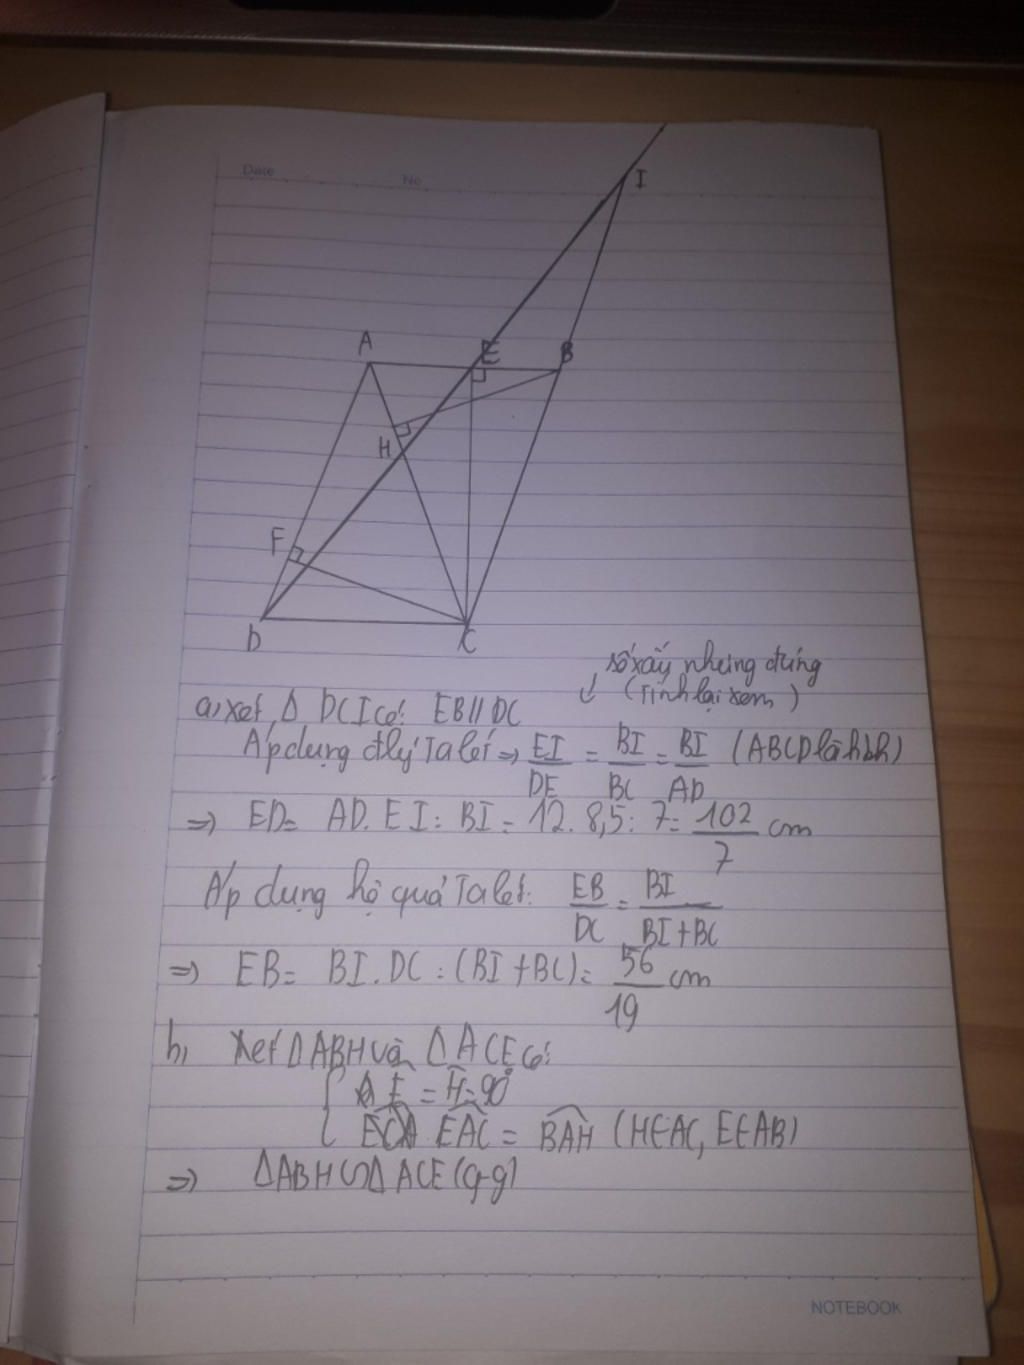 Date
No
I
A
E
B
H
F
D
C
số xấu nhưng đúng
(Tính lại xem)
a, xét Δ DCI có: EB // DC
Áp dụng đlý Ta lét => EI/DE = BI/BC = BI/AD (ABCD là hbh)
=> ED = AD. EI : BI = 12. 8,5 : 7 = 102/7 cm
Áp dụng hệ quả Ta let: EB/DC = BI/BI+BC
=> EB = BI. DC : (BI + BC) = 56/19 cm
b, Xét ΔABH và ΔACE có:
E = Ĥ = 90°
EAC = BAH (H∈AC, E∈AB)
=> ΔABH ∽ Δ ACE (g-g)
NOTEBOOK